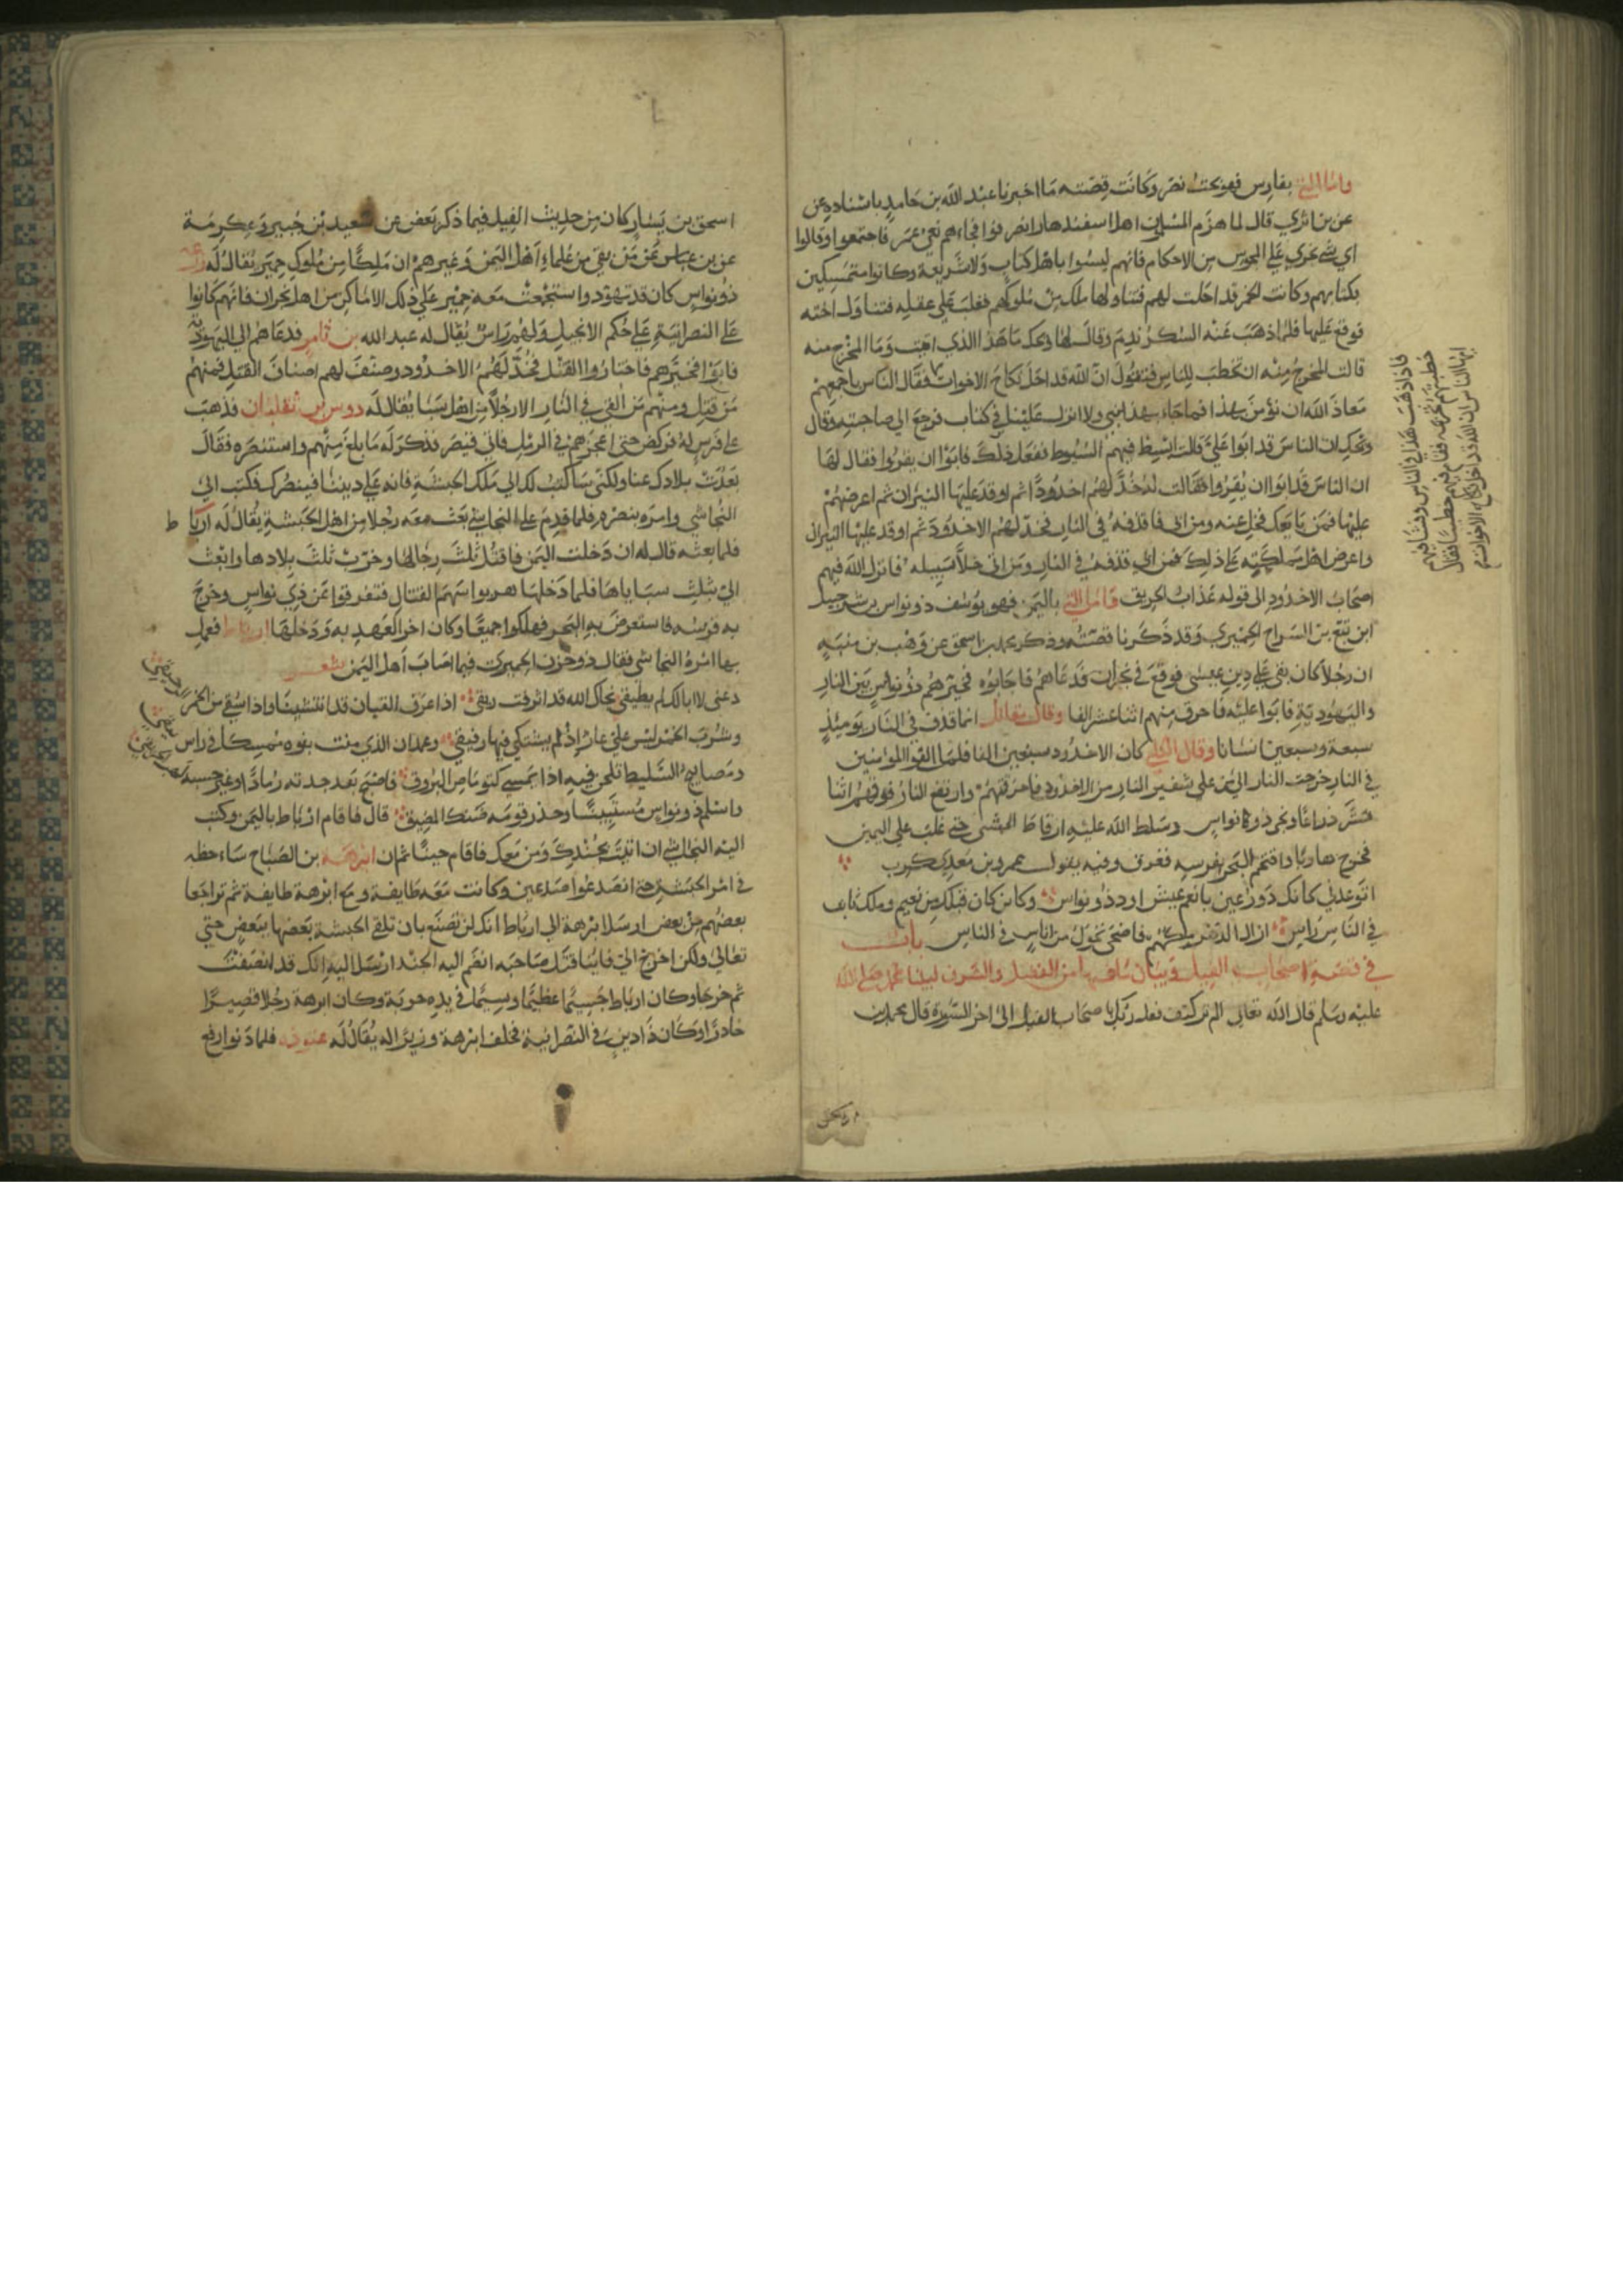 واما التي بفارس فهو بخت نصر وكانت قصته ما اخبرنا عبد الله بن حامد باسناده عن
عن بن ابزي قال لما هزم المسلمين اهل اسفندهار انصرفوا فجاءهم نعي عمر فاجتمعوا وقالوا
اي شي نجري علي المجوس من الاحكام فانهم ليسوا باهل كتاب ولا شريعة وكانوا متمسكين
بكتابهم وكانت الخمر قد احلت لهم فتناولها ملك من ملوكهم فغلب علي عقله فتناول اخته
فوقع عليها فلما ذهب عنه السكر ندم وقال لها ويحك ما هذا الذي اتيت وما المخرج منه
قالت المخرج منه ان تخطب للناس فتقول ان الله قد احل نكاح الاخوات فقال الناس باجمعهم
معاذ الله ان نؤمن بهذا فما جاء بهذا نبي ولا انزل علينا في كتاب فرجع الي صاحبته وقال
ويحك ان الناس قد ابوا علي قالت ابسط فيهم السوط ففعل ذلك فابوا ان يقروا فقال لها
ان الناس قد ابوا ان يقروا فقالت له خُدَّ لهم اخدودا ثم اوقد عليها النيران ثم اعرضهم
عليها فمن بايعك فخل عنه ومن ابي فاقذفه في النار فخد لهم الاخدود ثم اوقد عليها النيران
واعرض اهل مملكته علي ذلك فمن ابي قذفه في النار ومن اتي خلا سبيله فانزل الله فيهم
اصحاب الاخدود الى قوله عذاب الحريق فاما التي باليمن فهو يوسف ذو نواس بن شرحبيل
ابن تبع بن السراح الحميري وقد ذكرنا قصته وذكر محمد بن اسحق عن وهب بن منبه
ان رجلا كان بقي علي دين عيسى فوقع في نجران فدعاهم فاجابوه فخيرهم ذو نواس بين النار
واليهودية فابوا عليه فاحرق منهم اثنا عشر الفا وقال مقاتل انما قذف في النار يومئذ
سبعة وسبعين انسانا وقال الكلبي كان الاخدود سبعين الفا فلما القوا المؤمنين
في النار خرجت النار الي من على شفير النار من الاخدود فاحرقتهم وارتفع النار فوقهم اثنا
عشر ذراعا ونجى ذو نواس وسلط الله عليه ارباط الحبشي حتى غلب علي اليمن
فخرج هاربا واقتحم البحر بفرسه فغرق وفيه يقول عمرو بن معديكرب
اتوعدني كانك ذو رعين بانعم عيش او ذو نواس وكاين كان قبلك من نعيم وملك ثابت
في الناس راس ازال الدهر ملكهم فاضحى تحول من اناس في الناس باب
في قصة اصحاب الفيل وبيان ما فيها من الفضل والشرف لنبينا محمد صلي الله
عليه وسلم قال الله تعالى الم تر كيف فعل ربك باصحاب الفيل الى اخر السورة قال محمد بن
فاذا ذهب هذا في الناس وتناسوه
خطبتهم فقام فيهم خطيبا فقال
ايها الناس ان الله قد احل نكاح الاخوات
اسحق بن يسار كان من حديث الفيل فيما ذكر بعض عن سعيد بن جبير وعكرمة
عن بن عباس عمن بقي من علماء اهل اليمن وغيرهم ان ملكا من ملوك حمير يقال له
ذو نواس كان قد تهود واستجمعت معه حمير علي ذلك الا ما كان من اهل نجران فانهم كانوا
علي النصرانية علي حكم الانجيل ولهم راس يقال له عبد الله بن ثامر فدعاهم الي اليهودية
فابوا فخيرهم فاختاروا القتل فخد لهم الاخدود وصنف لهم اصناف القتل فمنهم
من قتل ومنهم من القي في النار الا رجلا من اهل سبا يقال له دوس بن ثعلبان فذهب
علي فرس له فركض حتي اعجزهم في الرمل فاتي قيصر فذكر له ما بلغ منهم واستنصره فقال
بعدت بلادك عنا ولكني ساكتب لك الي ملك الحبشة فانه علي ديننا فينصرك فكتب الي
النجاشي وامره بنصره فلما قدم علي النجاشي بعث معه رجلا من اهل الحبشة يقال له ارباط
فلما بعثه قال له ان دخلت اليمن فاقتل ثلث رجالها وخرب ثلث بلادها وابعث
الي بثلث سباياها فلما دخلها هربوا القتال فتفرقوا عن ذي نواس وخرج
به فرسه فاستعرض به البحر فهلكوا جميعا وكان اخر العهد به ودخلها ارباط فعمل
بها امره النجاشي فقال ذو حزن الحميري فيما اصاب اهل اليمن شعر
دعني لا ابالك لم تطيقي نحاك الله قد انزفت ريقي اذا عزف القيان قد انتشينا واذا نسقي من الخمر الرحيق
وشرب الخمر ليس علي عار اذا لم يشتكي فيها رفيقي وغمدان الذي بنوه ممسكا في راس
ومصابيح السليط تلحن فيه اذا يمسي كتوماض البروق فاصبح بعد جدته رمادا وغير حسنه
واسلم ذو نواس مستميتا وحذر قومه ضنك المضيق قال فاقام ارباط باليمن وكتب
اليه النجاشي ان اثبت بجندك ومن معك فاقام حينا ثم ان ابرهة بن الصباح ساءحظه
في امر الحبشة حتي انصدعوا صدعين وكانت معه طايفة ومع ابرهة طايفة ثم تراجعا
بعضهم من بعض ارسل ابرهة الي ارباط انك لن تصنع بان تلقي الحبشة بعضها ببعض حتي
تعالي ولكن اخرج الي فاينا قتل صاحبه انضم اليه الجند ارسل اليه انك قد انصفت
ثم خرجا وكان ارباط جسيما عظيما وسيما في يده حربة وكان ابرهة رجلا قصيرا
حادرا وكان ذا دين في النصرانية فخلف ابرهة وزيرا له يقال له عتودة فلما دنوا رفع